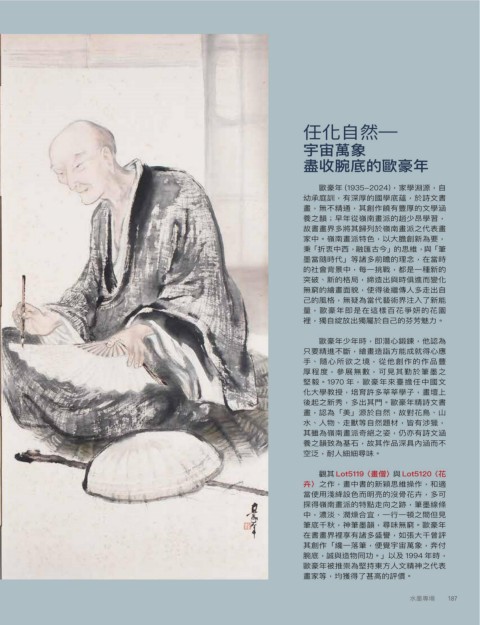 任化自然—
宇宙萬象
盡收腕底的歐豪年
歐豪年(1935~2024)，家學淵源，自
幼承庭訓，有深厚的國學底蘊，於詩文書
畫，無不精通，其創作饒有豐厚的文學涵
養之韻；早年從嶺南畫派的趙少昂學習，
故書畫界多將其歸列於嶺南畫派之代表畫
家中。嶺南畫派特色，以大膽創新為要，
秉「折衷中西、融匯古今」的思維，與「筆
墨當隨時代」等諸多前瞻的理念，在當時
的社會背景中，每一挑戰，都是一種新的
突破、新的格局，締造出與時俱進而變化
無窮的繪畫面貌，使得後繼傳人多走出自
己的風格，無疑為當代藝術界注入了新能
量，歐豪年即是在這樣百花爭妍的花園
裡，獨自綻放出獨屬於自己的芬芳魅力。
歐豪年少年時，即潛心鍛鍊，他認為
只要精進不斷，繪畫造詣方能成就得心應
手、隨心所欲之境，從他創作的作品豐
厚程度，參展無數，可見其勤於筆墨之
堅毅。1970 年，歐豪年來臺擔任中國文
化大學教授，培育許多莘莘學子，畫壇上
後起之新秀，多出其門。歐豪年精詩文書
畫，認為「美」源於自然，故對花鳥、山
水、人物、走獸等自然題材，皆有涉獵，
其雖為嶺南畫派奇絕之姿，仍亦有詩文涵
養之韻致為基石，故其作品深具內涵而不
空泛，耐人細細尋味。
觀其 Lot5119〈畫僧〉與 Lot5120〈花
卉〉之作，畫中書的新穎思維操作，和適
當使用淺絳設色而明亮的沒骨花卉，多可
探得嶺南畫派的特點走向之跡，筆墨線條
中，濃淡、潤燥合宜，一行一頓之間但見
筆底千秋，神筆墨韻，尋味無窮。歐豪年
在書畫界裡享有諸多盛譽，如張大千曾評
其創作「纔一落筆，便覺宇宙萬象，奔付
腕底，誠與造物同功。」以及 1994 年時，
歐豪年被推崇為堅持東方人文精神之代表
畫家等，均獲得了甚高的評價。
水墨專場 187